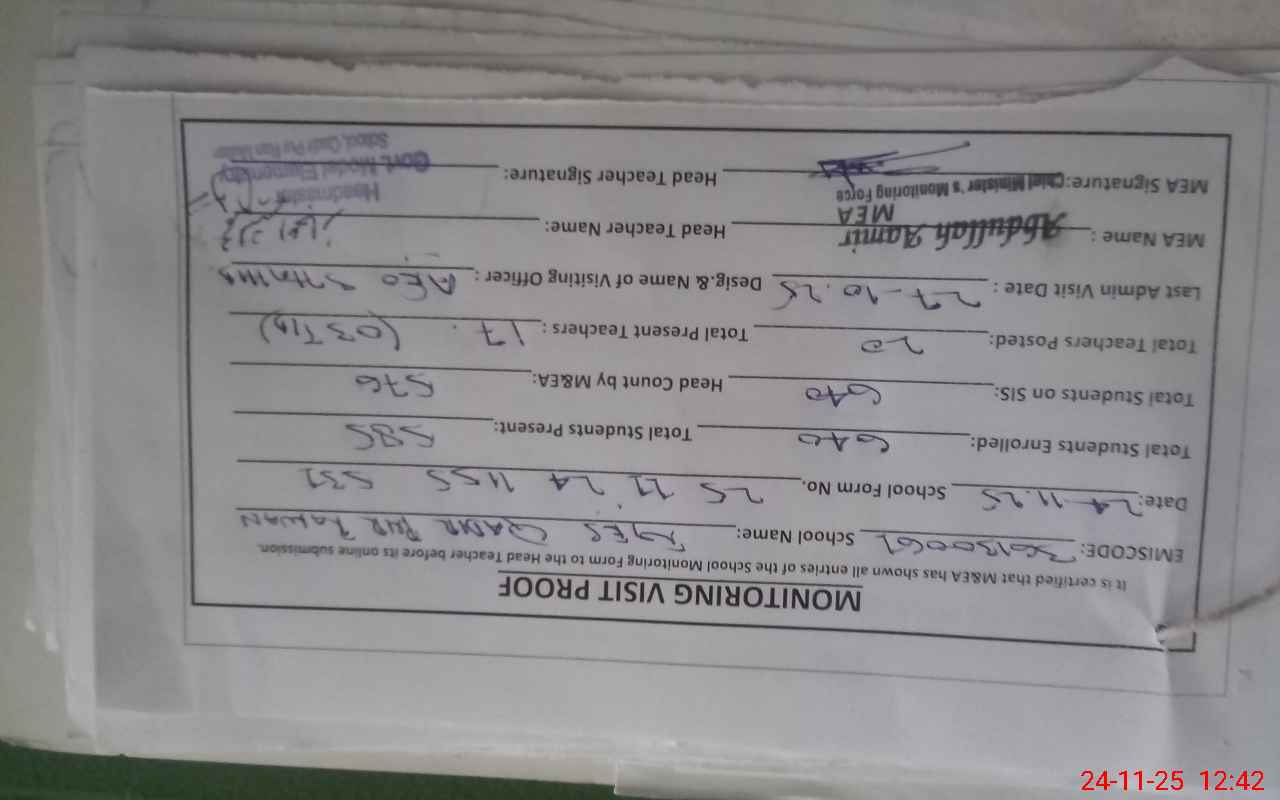 MONITORING VISIT PROOF
It is certified that M&EA has shown all entries of the School Monitoring Form to the Head Teacher before its online submission.
EMISCODE: School Name: QADIR PUR RAWAN
Date: 24-11.25 School Form No. 25 11 24
Total Students Enrolled: 640 Total Students Present: 585
Total Students on SIS: 640 Head Count by M&EA: 576
Total Teachers Posted: 20 Total Present Teachers: 17
Last Admin Visit Date: 27-10.25 Desig.& Name of Visiting Officer: AEO
MEA Name: Abdullah Aamir Head Teacher Name:
MEA
MEA Signature: Chief Minister's Monitoring Force Head Teacher Signature:
Headmaster
Govt. Model Elementary
School, Qadir Pur Ran
24-11-25 12:42